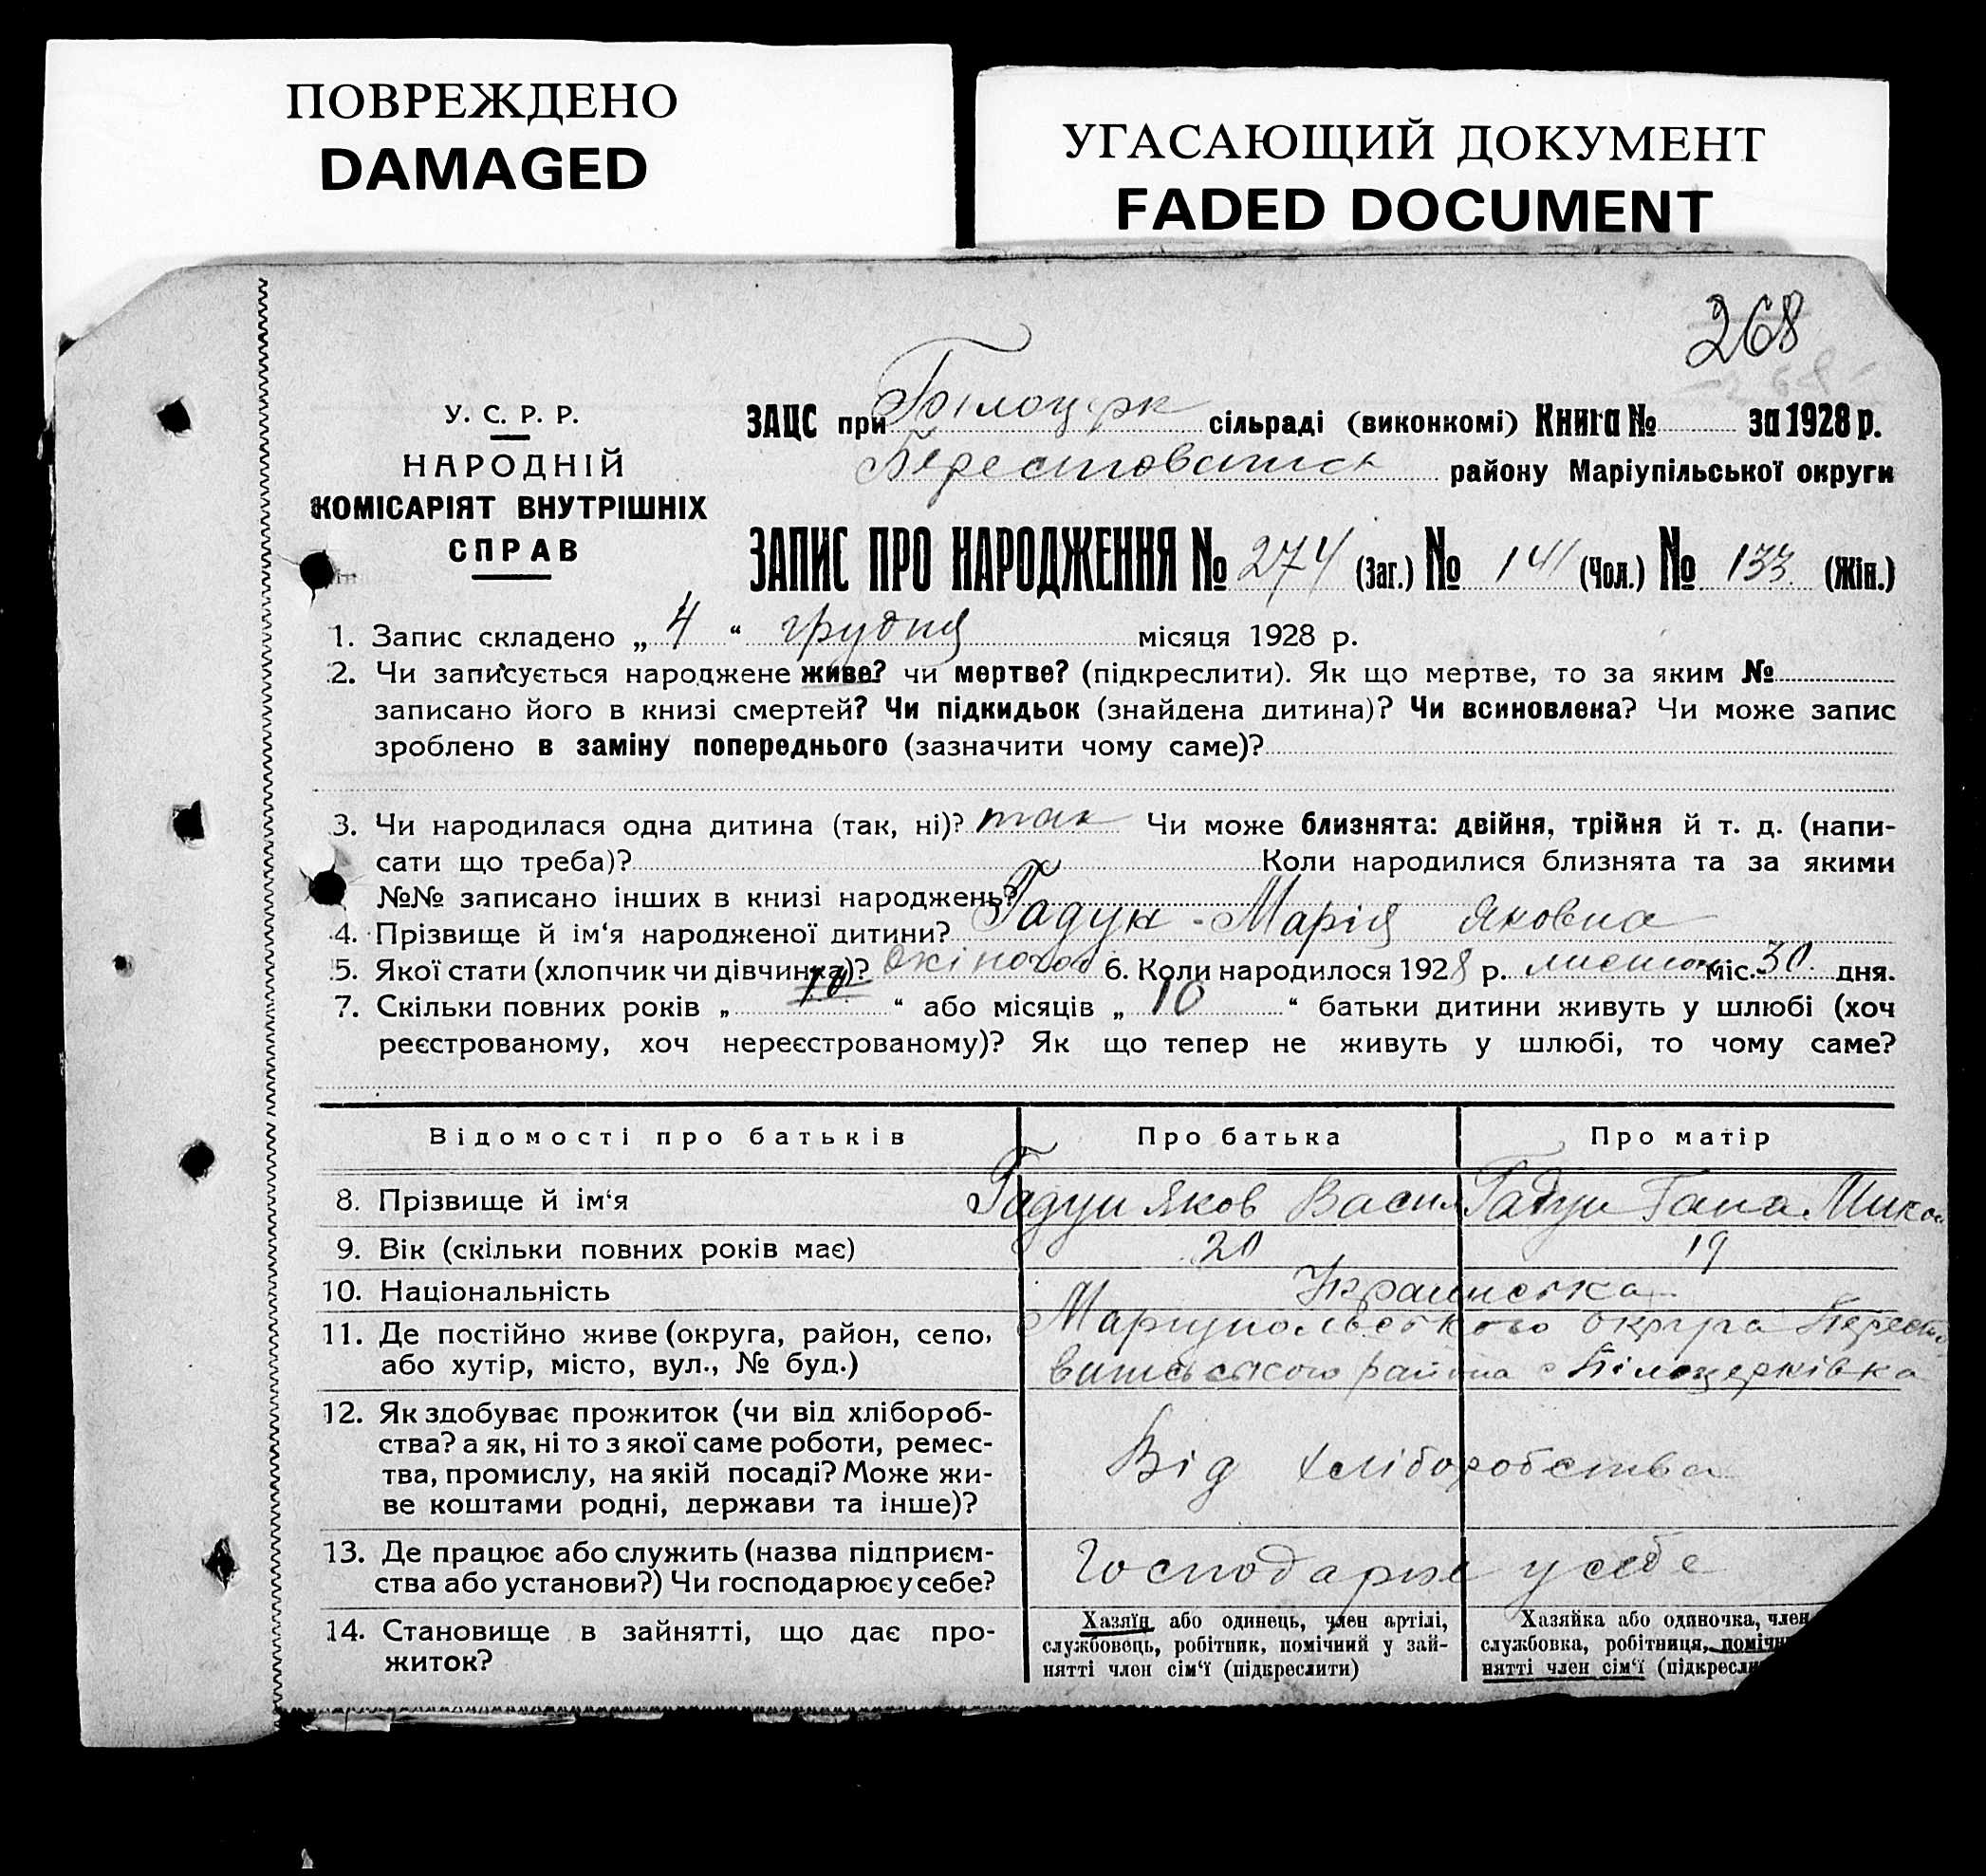 ПОВРЕЖДЕНО
DAMAGED
УГАСАЮЩИЙ ДОКУМЕНТ
FADED DOCUMENT
268
У. С. Р. Р.
НАРОДНІЙ
КОМІСАРІЯТ ВНУТРІШНІХ
СПРАВ
ЗАЦС при Білоцерк сільраді (виконкомі) Книга № за 1928 р.
району Маріупільської округи
ЗАПИС ПРО НАРОДЖЕННЯ № 274 (Заг.) № 141 (Чол.) № 133 (Жін.)
1. Запис складено „ 4 “ грудня місяця 1928 р.
2. Чи записується народжене живе? чи мертве? (підкреслити). Як що мертве, то за яким №
записано його в книзі смертей? Чи підкидьок (знайдена дитина)? Чи всиновлена? Чи може запис
зроблено в заміну попереднього (зазначити чому саме)?
3. Чи народилася одна дитина (так, ні)? так Чи може близнята: двійня, трійня й т. д. (напи-
сати що треба)? Коли народилися близнята та за якими
№№ записано інших в книзі народжень?
4. Прізвище й ім‘я народженої дитини? Гадун - Марія Яковна
5. Якої стати (хлопчик чи дівчинка)? 6. Коли народилося 1928 р. міс. 30 дня.
7. Скільки повних років „ “ або місяців „ 10 “ батьки дитини живуть у шлюбі (хоч
реєстрованому, хоч нереєстрованому)? Як що тепер не живуть у шлюбі, то чому саме?
Відомості про батьків Про батька Про матір
8. Прізвище й ім‘я Гадун Яков Васил Гадун Гана Микол
9. Вік (скільки повних років має) 20 19
10. Національність Украинська
11. Де постійно живе (округа, район, село, Мариупольського округа Берест
або хутір, місто, вул., № буд.) района с Білоцерківка
12. Як здобуває прожиток (чи від хлібороб-
ства? а як, ні то з якої саме роботи, ремес-
тва, промислу, на якій посаді? Може жи-
ве коштами родні, держави та інше)?
Від хліборобства
13. Де працює або служить (назва підприєм-
ства або установи?) Чи господарює у себе?
Господарює у себе
14. Становище в зайнятті, що дає про-
житок?
Хазяїн або одинець, член артілі,
службовець, робітник, помічний у зай-
нятті член сім‘ї (підкреслити)
Хазяйка або одиночка, член
службовка, робітниця, помічн
нятті член сім‘ї (підкресли